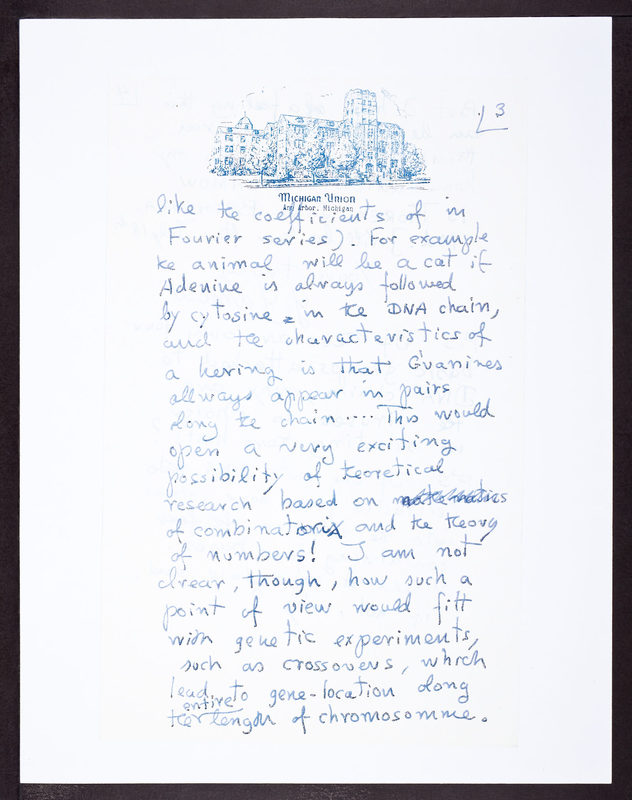 3
Michigan Union
Ann Arbor, Michigan
like the coefficients of in
Fourier series). For example
the animal will be a cat if
Adenine is always followed
by cytosine in the DNA chain,
and the characteristics of
a hering is that Guanines
allways appear in pairs
along the chain .... This would
open a very exciting
possibility of teoretical
research based on
of combinatorix and the theory
of numbers! I am not
clrear, though, how such a
point of view would fitt
with genetic experiments,
such as crossovers, which
lead to gene-location along
entire
the length of chromosomme.